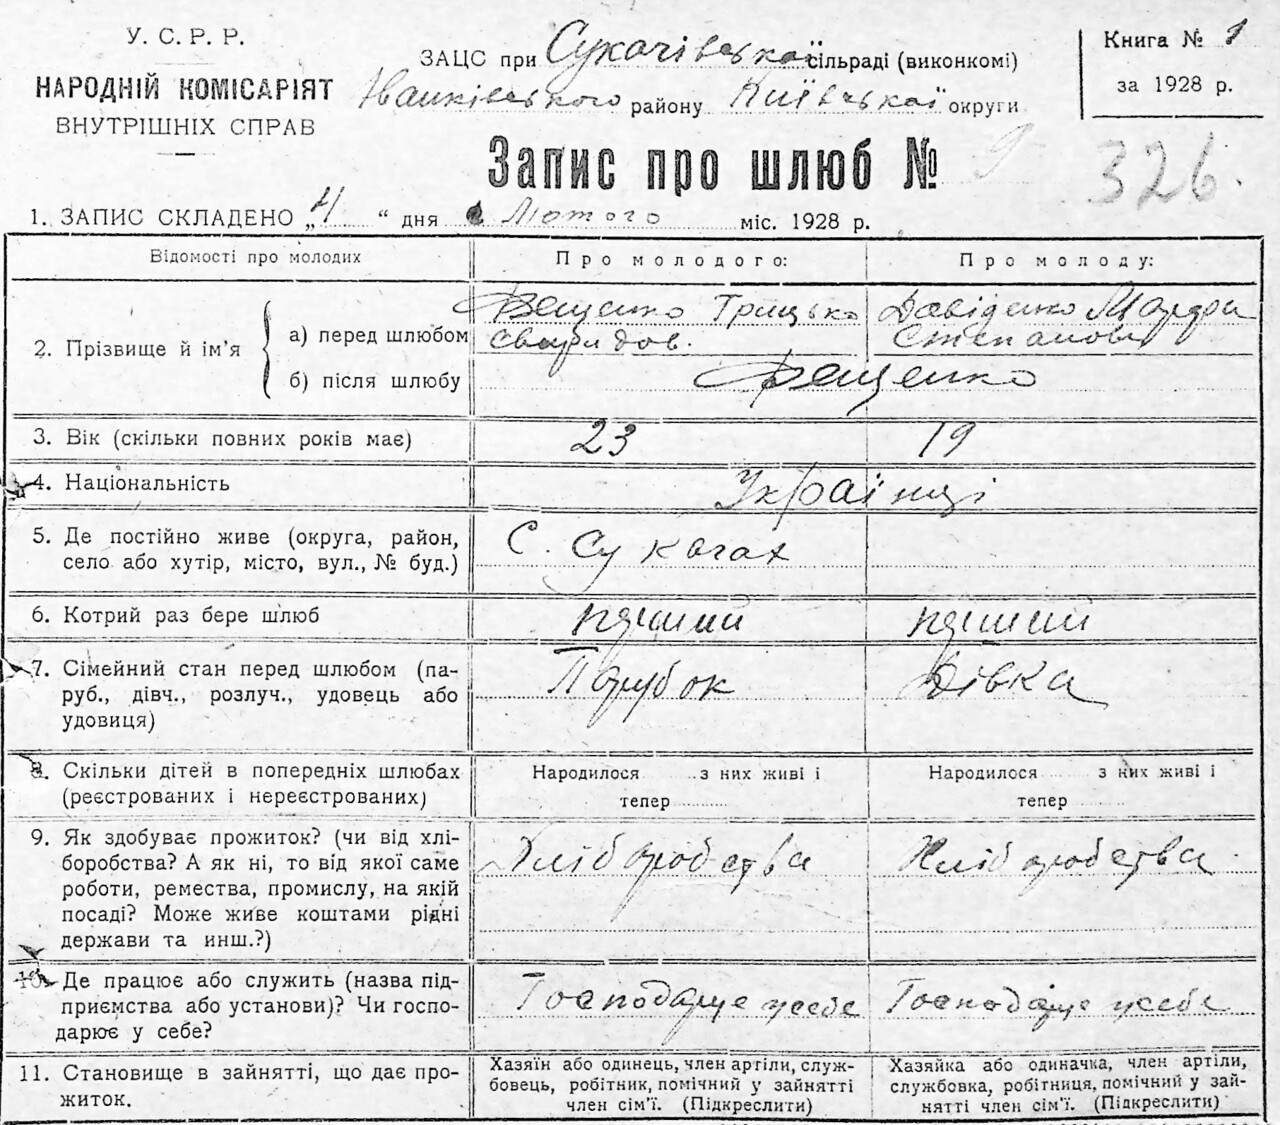 У. С. Р. Р.
НАРОДНІЙ КОМІСАРІЯТ
ВНУТРІШНІХ СПРАВ
ЗАЦС при Сукачівської сільраді (виконкомі)
Іванківського району Київської округи
Книга № 1
за 1928 р.
Запис про шлюб № 9
326.
1. ЗАПИС СКЛАДЕНО „4 “ дня Лютого міс. 1928 р.
Відомості про молодих
Про молодого:
Про молоду:
2. Прізвище й ім’я
а) перед шлюбом
Фещенко Грицько
Свиридов.
Давіденко
Степанова
б) після шлюбу
Фещенко
3. Вік (скільки повних років має)
23
19
4. Національність
Українці
5. Де постійно живе (округа, район,
село або хутір, місто, вул., № буд.)
С. Сукачах
6. Котрий раз бере шлюб
перший
перший
7. Сімейний стан перед шлюбом (па-
руб., дівч., розлуч., удовець або
удовиця)
Парубок
Дівка
8. Скільки дітей в попередніх шлюбах
(реєстрованих і нереєстрованих)
Народилося з них живі і
тепер
Народилося з них живі і
тепер
9. Як здобуває прожиток? (чи від хлі-
боробства? А як ні, то від якої саме
роботи, ремества, промислу, на якій
посаді? Може живе коштами рідні
держави та инш.?)
Хліборобства
Хліборобства
10. Де працює або служить (назва під-
приємства або установи)? Чи госпо-
дарює у себе?
Господарує усебе
Господарує усебе
11. Становище в зайнятті, що дає про-
житок.
Хазяїн або одинець, член артілі, служ-
бовець, робітник, помічний у зайнятті
член сім’ї. (Підкреслити)
Хазяйка або одиначка, член артіли,
службовка, робітниця, помічний у зай-
нятті член сім’ї. (Підкреслити)